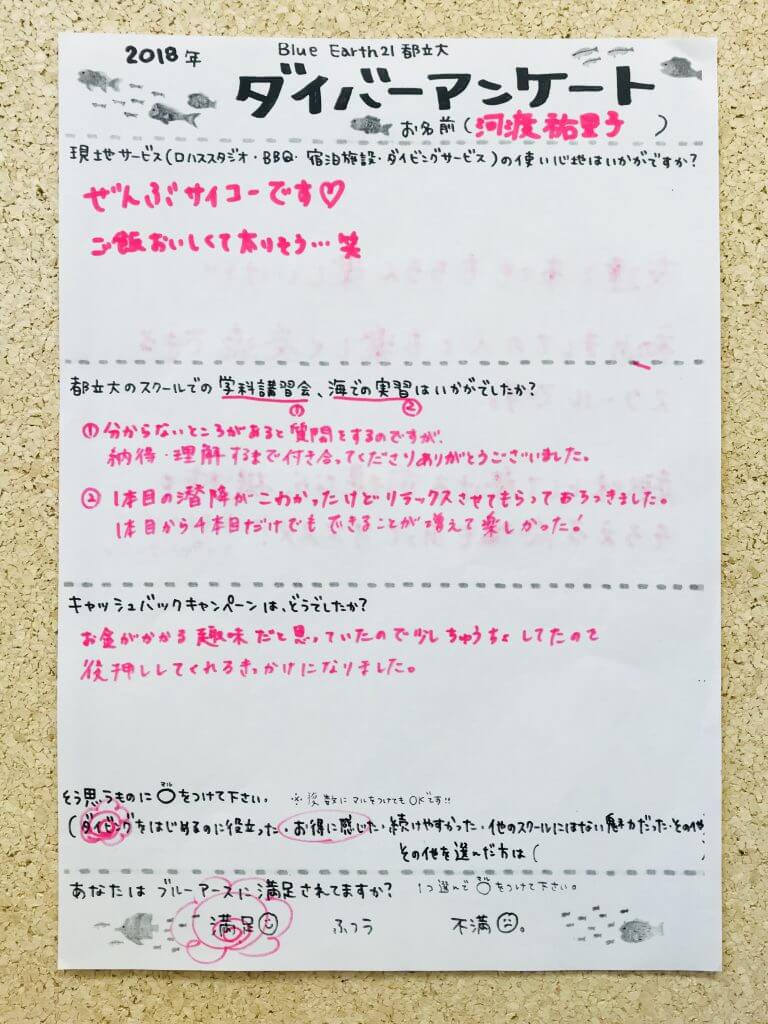 2018年
Blue Earth21 都立大
ダイバーアンケート
お名前(河渡祐里子)
現地サービス(ロハススタジオ・BBQ・宿泊施設・ダイビングサービス)の使い心地はいかがですか?
ぜんぶサイコーです♡
ご飯おいしくて太りそう…笑
都立大のスクールでの学科講習会、海での実習はいかがでしたか?
① ②
①分からないところがあると質問をするのですが、
納得・理解するまで付き合ってくださりありがとうございました。
②1本目の潜降がこわかったけどリラックスさせてもらっておちつきました。
1本目から4本目だけでもできることが増えて楽しかった!
キャッシュバックキャンペーンは、どうでしたか?
お金がかかる趣味だと思っていたので少しちゅうちょしてたので
後押ししてくれるきっかけになりました。
そう思うものに○をつけて下さい。 ※複数にマルをつけてもOKです!!
マル
(ダイビングをはじめるのに役立った・お得に感じた・続けやすかった・他のスクールにはない魅力だった・その他
その他を選んだ方は( )
あなたはブルーアースに満足されてますか? 1つ選んで○をつけて下さい。
マル
満足 ふつう 不満 。